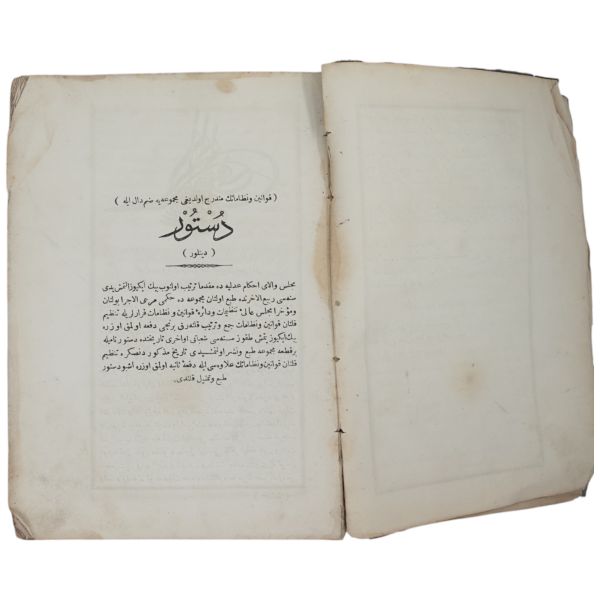 ( قوانین و نظاماتك مندرج اولدیغی مجموعه‌یه ضم دال ایله )
دُسْتُوْر
( دینلور )
مجلس والای احکام عدلیه ده مقدما ترتیب اولنوب بیك ایکیوز التمش یدی
سنه‌سی ربیع الاخرنده طبع اولنان مجموعه ده حکمی مرعی الاجرا بولنان
ومؤخرا مجلس عالی تنظیمات ودائرهٔ قوانین و نظامات قرارلریله تنظیم
قلنان قوانین و نظامات جمع و ترتیب قلنه‌رق برنجی دفعه اولمق اوزره
بیك ایکیوز یتمش طقوز سنه‌سی شعبانی اواخری تاریخنده دستور نامیله
برقطعه مجموعه طبع ونشر اولنمشیدی تاریخ مذکور دنصکره تنظیم
قلنان قوانین و نظاماتك علاوه‌سی ایله دفعهٔ ثانیه اولمق اوزره اشبو دستور
طبع و تمثیل قلندی.